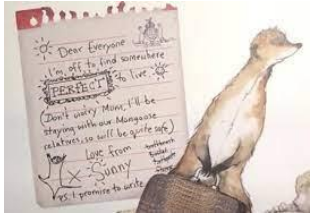 Dear Everyone
I'm off to find somewhere
PERFECT to live
(Don't worry Mum, I'll be
staying with our Mongoose
relatives, so will be quite safe)
Love from
X Sunny
PS I promise to write
toothbrush